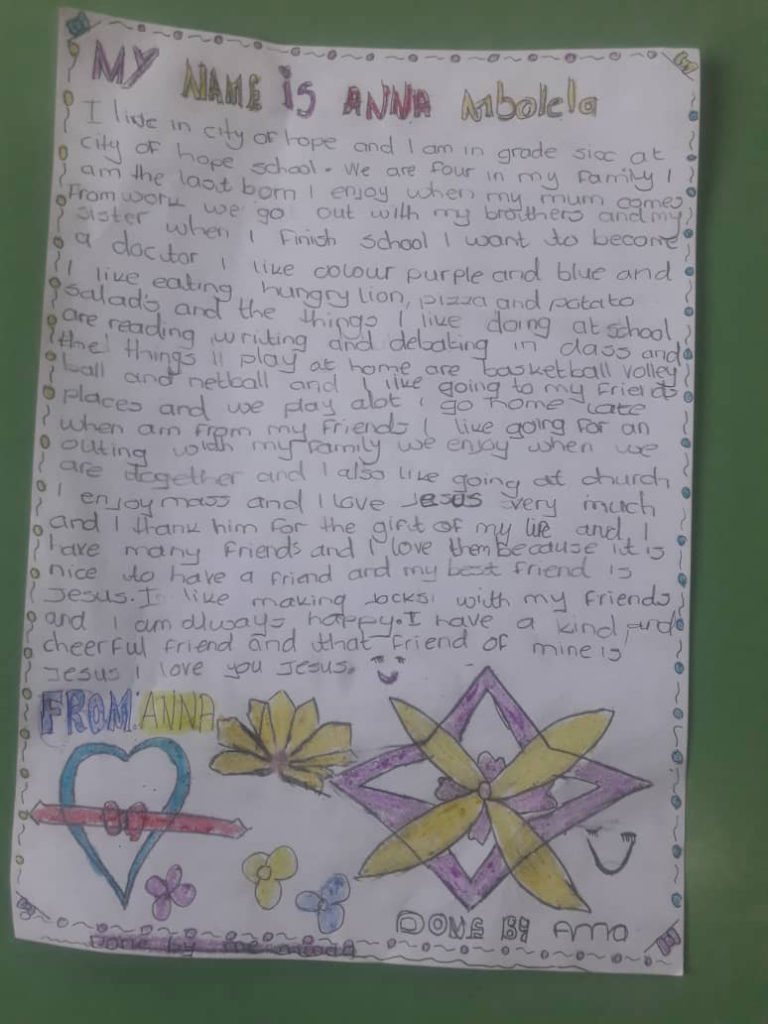 MY NAME is ANNA Mbolela
I live in city of hope and I am in grade six at
city of hope school. We are four in my family I
am the last born I enjoy when my mum comes
From work we go out with my brothers and my
sister when I finish school I want to become
a doctor I like colour purple and blue and
I like eating hungry lion, pizza and potato
salads and the things I like doing at school
are reading writing and debating in class and
the things I play at home are basketball volley
ball and netball and I like going to my friends
places and we play alot I go home late
when am from my friends I like going for an
outing with my family we enjoy when we
are together and I also like going at church
I enjoy mass and I love Jesus very much
and I thank him for the gift of my life and I
have many friends and I love them Because it is
nice to have a friend and my best friend is
Jesus. I like making jocks with my friends
and I am always happy. I have a kind and
cheerful friend and that friend of mine is
Jesus I love you Jesus.
FROM: ANNA
DONE BY Anna
Done by